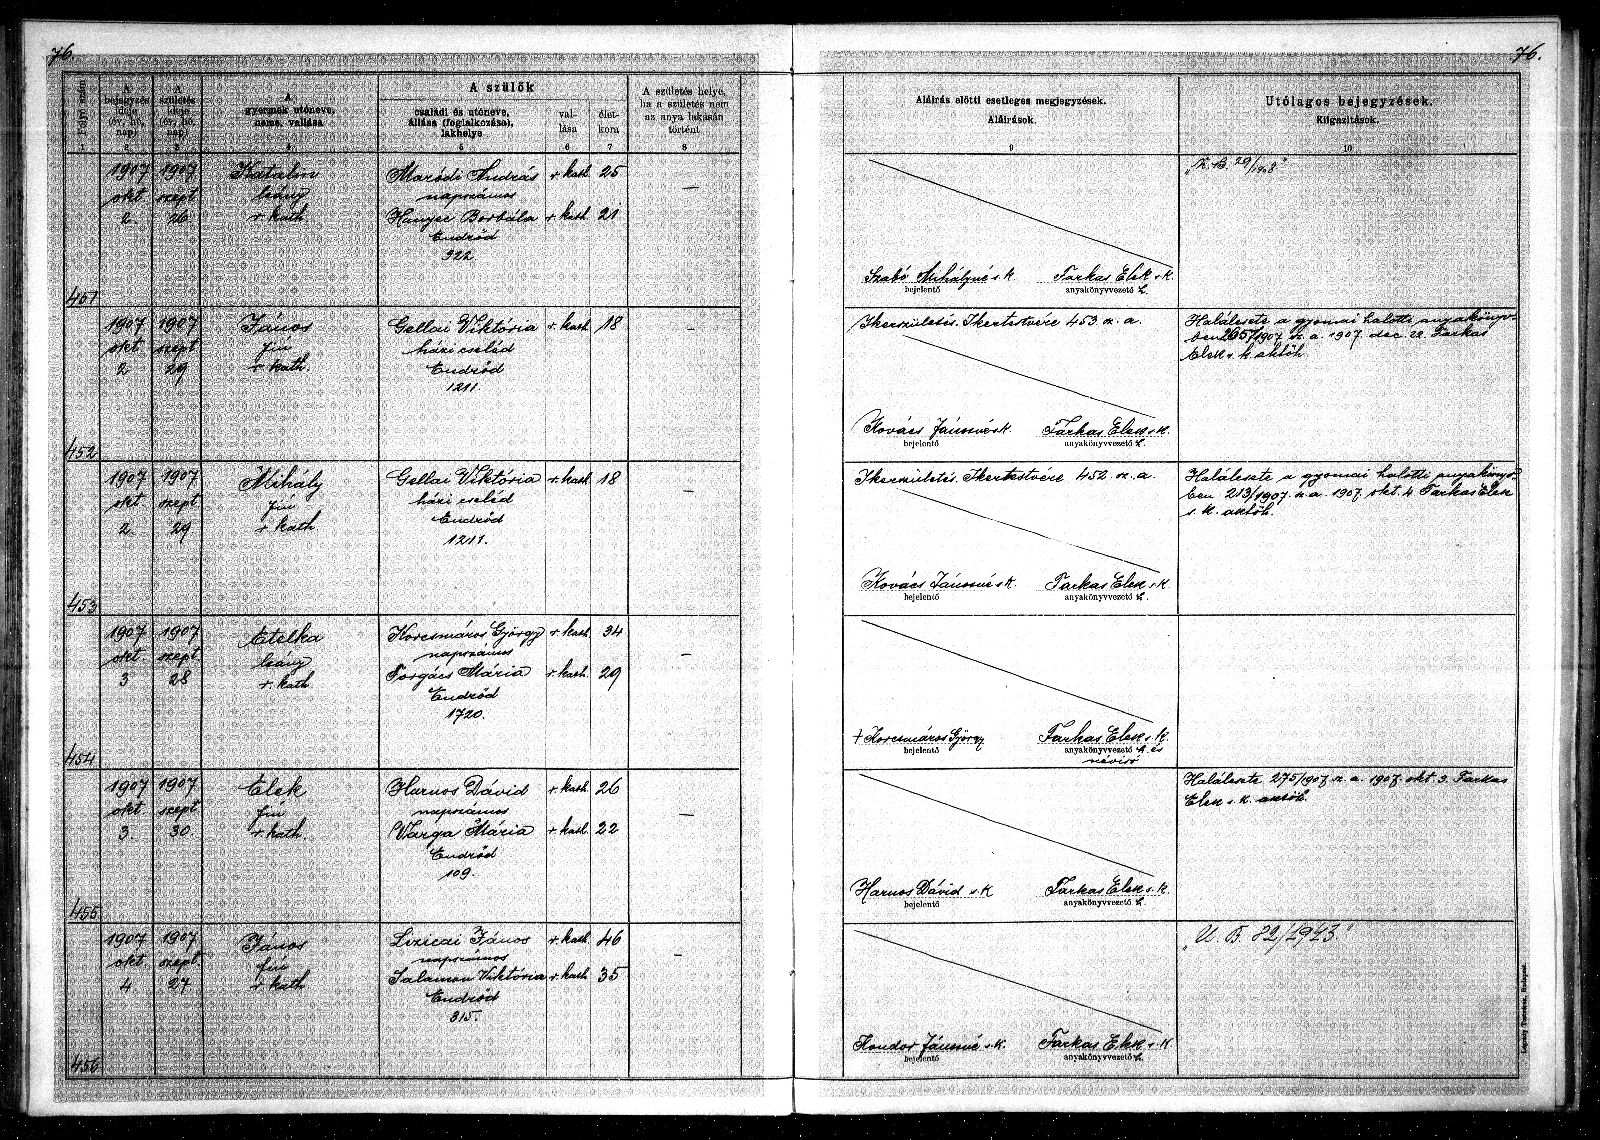 76.
76.
Folyó szám
A bejegyzés ideje (év, hó, nap)
A születés ideje (év, hó, nap)
A gyermek utóneve, neme, vallása
A szülők
családi és utóneve, állása (foglalkozása), lakhelye
val-lása
élet-kora
A születés helye, ha a születés nem az anya lakásán történt
Aláirás előtti esetleges megjegyzések. Aláirások.
Utólagos bejegyzések. Kiigazitások.
1 2 3 4 5 6 7 8 9 10
451
1907 1907 Katalin Maródi András r. kath. 25
okt. szept. leány napszámos
2 26 r. kath. Hanyec Borbála r. kath. 21
Endrőd
922.
Szabó Mihályné s. k. Farkas Elek s. k.
bejelentő anyakönyvvezető h.
452
1907 1907 János Gellai Viktória r. kath. 18
okt. szept. fiú házi cseléd
2 29 r. kath. Endrőd
1211.
Ikerszületés. Ikertestvére 453 sz. a.
Kovács Jánosné s. k. Farkas Elek s. k.
bejelentő anyakönyvvezető h.
Halálesete a gyomai halotti anyakönyv-
ben 265/1907 sz. a. 1907. dec. 22. Farkas
Elek s. k. aktőh.
453
1907 1907 Mihály Gellai Viktória r. kath. 18
okt. szept. fiú házi cseléd
2. 29 r. kath Endrőd
1211.
Ikerszületés. Ikertestvére 452 sz. a.
Kovács Jánosné s. k. Farkas Elek s. k.
bejelentő anyakönyvvezető h.
Halálesete a gyomai halotti anyakönyv-
ben 213/1907. sz. a. 1907. okt. 4. Farkas Elek
s. k. aktőh.
454
1907 1907 Etelka Korcsmáros György r. kath. 34
okt. szept. leány napszámos
3 28 r. kath Forgács Mária r. kath. 29
Endrőd
1720.
+ Korcsmáros György Farkas Elek s. k.
bejelentő anyakönyvvezető h. és
névíró
455
1907 1907 Elek Harnos Dávid r. kath. 26
okt. szept. fiú napszámos
3. 30 r. kath. Varga Mária r. kath. 22
Endrőd
109.
Harnos Dávid s. k. Farkas Elek s. k.
bejelentő anyakönyvvezető h.
Halálesete 275/1907. sz. a. 1907. okt. 3. Farkas
Elek s. k. aktőh.
456
1907 1907 János Liziczai János r. kath. 46
okt. szept. fiú napszámos
4 27 r. kath Salamon Viktória r. kath. 35
Endrőd
315.
Kondor Jánosné s. k. Farkas Elek s. k.
bejelentő anyakönyvvezető h.
„U. B. 82/1943."
Légrády Testvérek, Budapest.